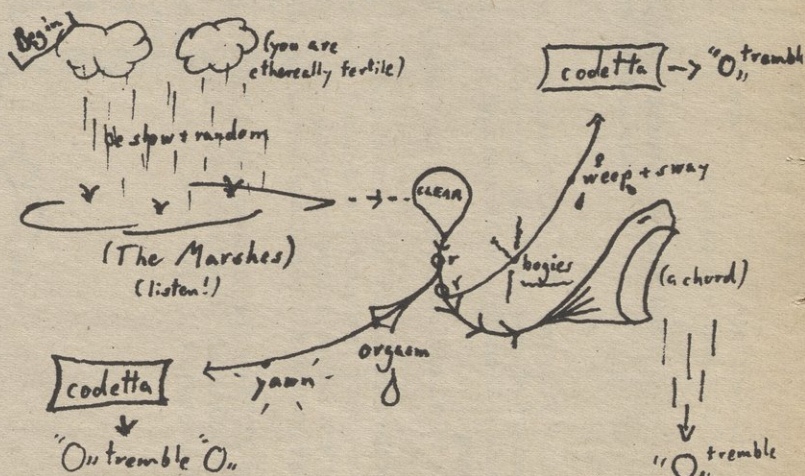 Begin
(you are
ethereally fertile)
be slow + random
(The Marshes)
(listen!)
CLEAR
r
r
codetta → "O„ tremble
weep + sway
bogies
(a chord)
orgasm
yawn
codetta
"O„ tremble "O„
"O„ tremble